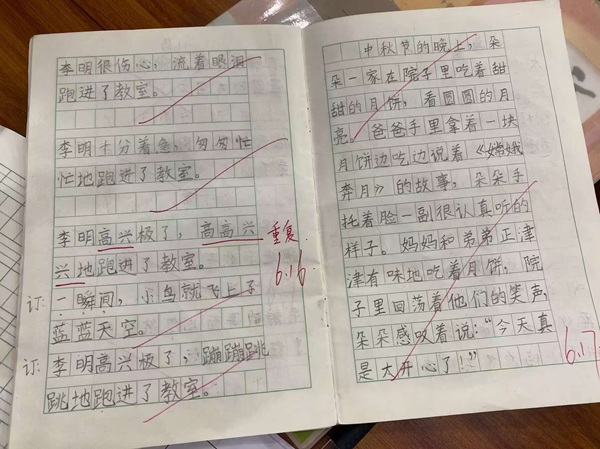 李明很伤心，流着眼泪
跑进了教室。
李明十分着急，匆匆忙
忙地跑进了教室。
李明高兴极了，高高兴
兴地跑进了教室。
重复
6.16
订：一瞬间，小鸟就飞上了
蓝蓝天空。
订：李明高兴极了，蹦蹦跳
跳地跑进了教室。
中秋节的晚上，朵
朵一家在院子里吃着甜
甜的月饼，看圆圆的月
亮。爸爸手里拿着一块
月饼边吃边说着《嫦娥
奔月》的故事，朵朵手
托着脸一副很认真听的
样子。妈妈和弟弟正津
津有味地吃着月饼，院
子里回荡着他们的笑声，
朵朵感叹着说：“今天真
是大开心了！”
6.17